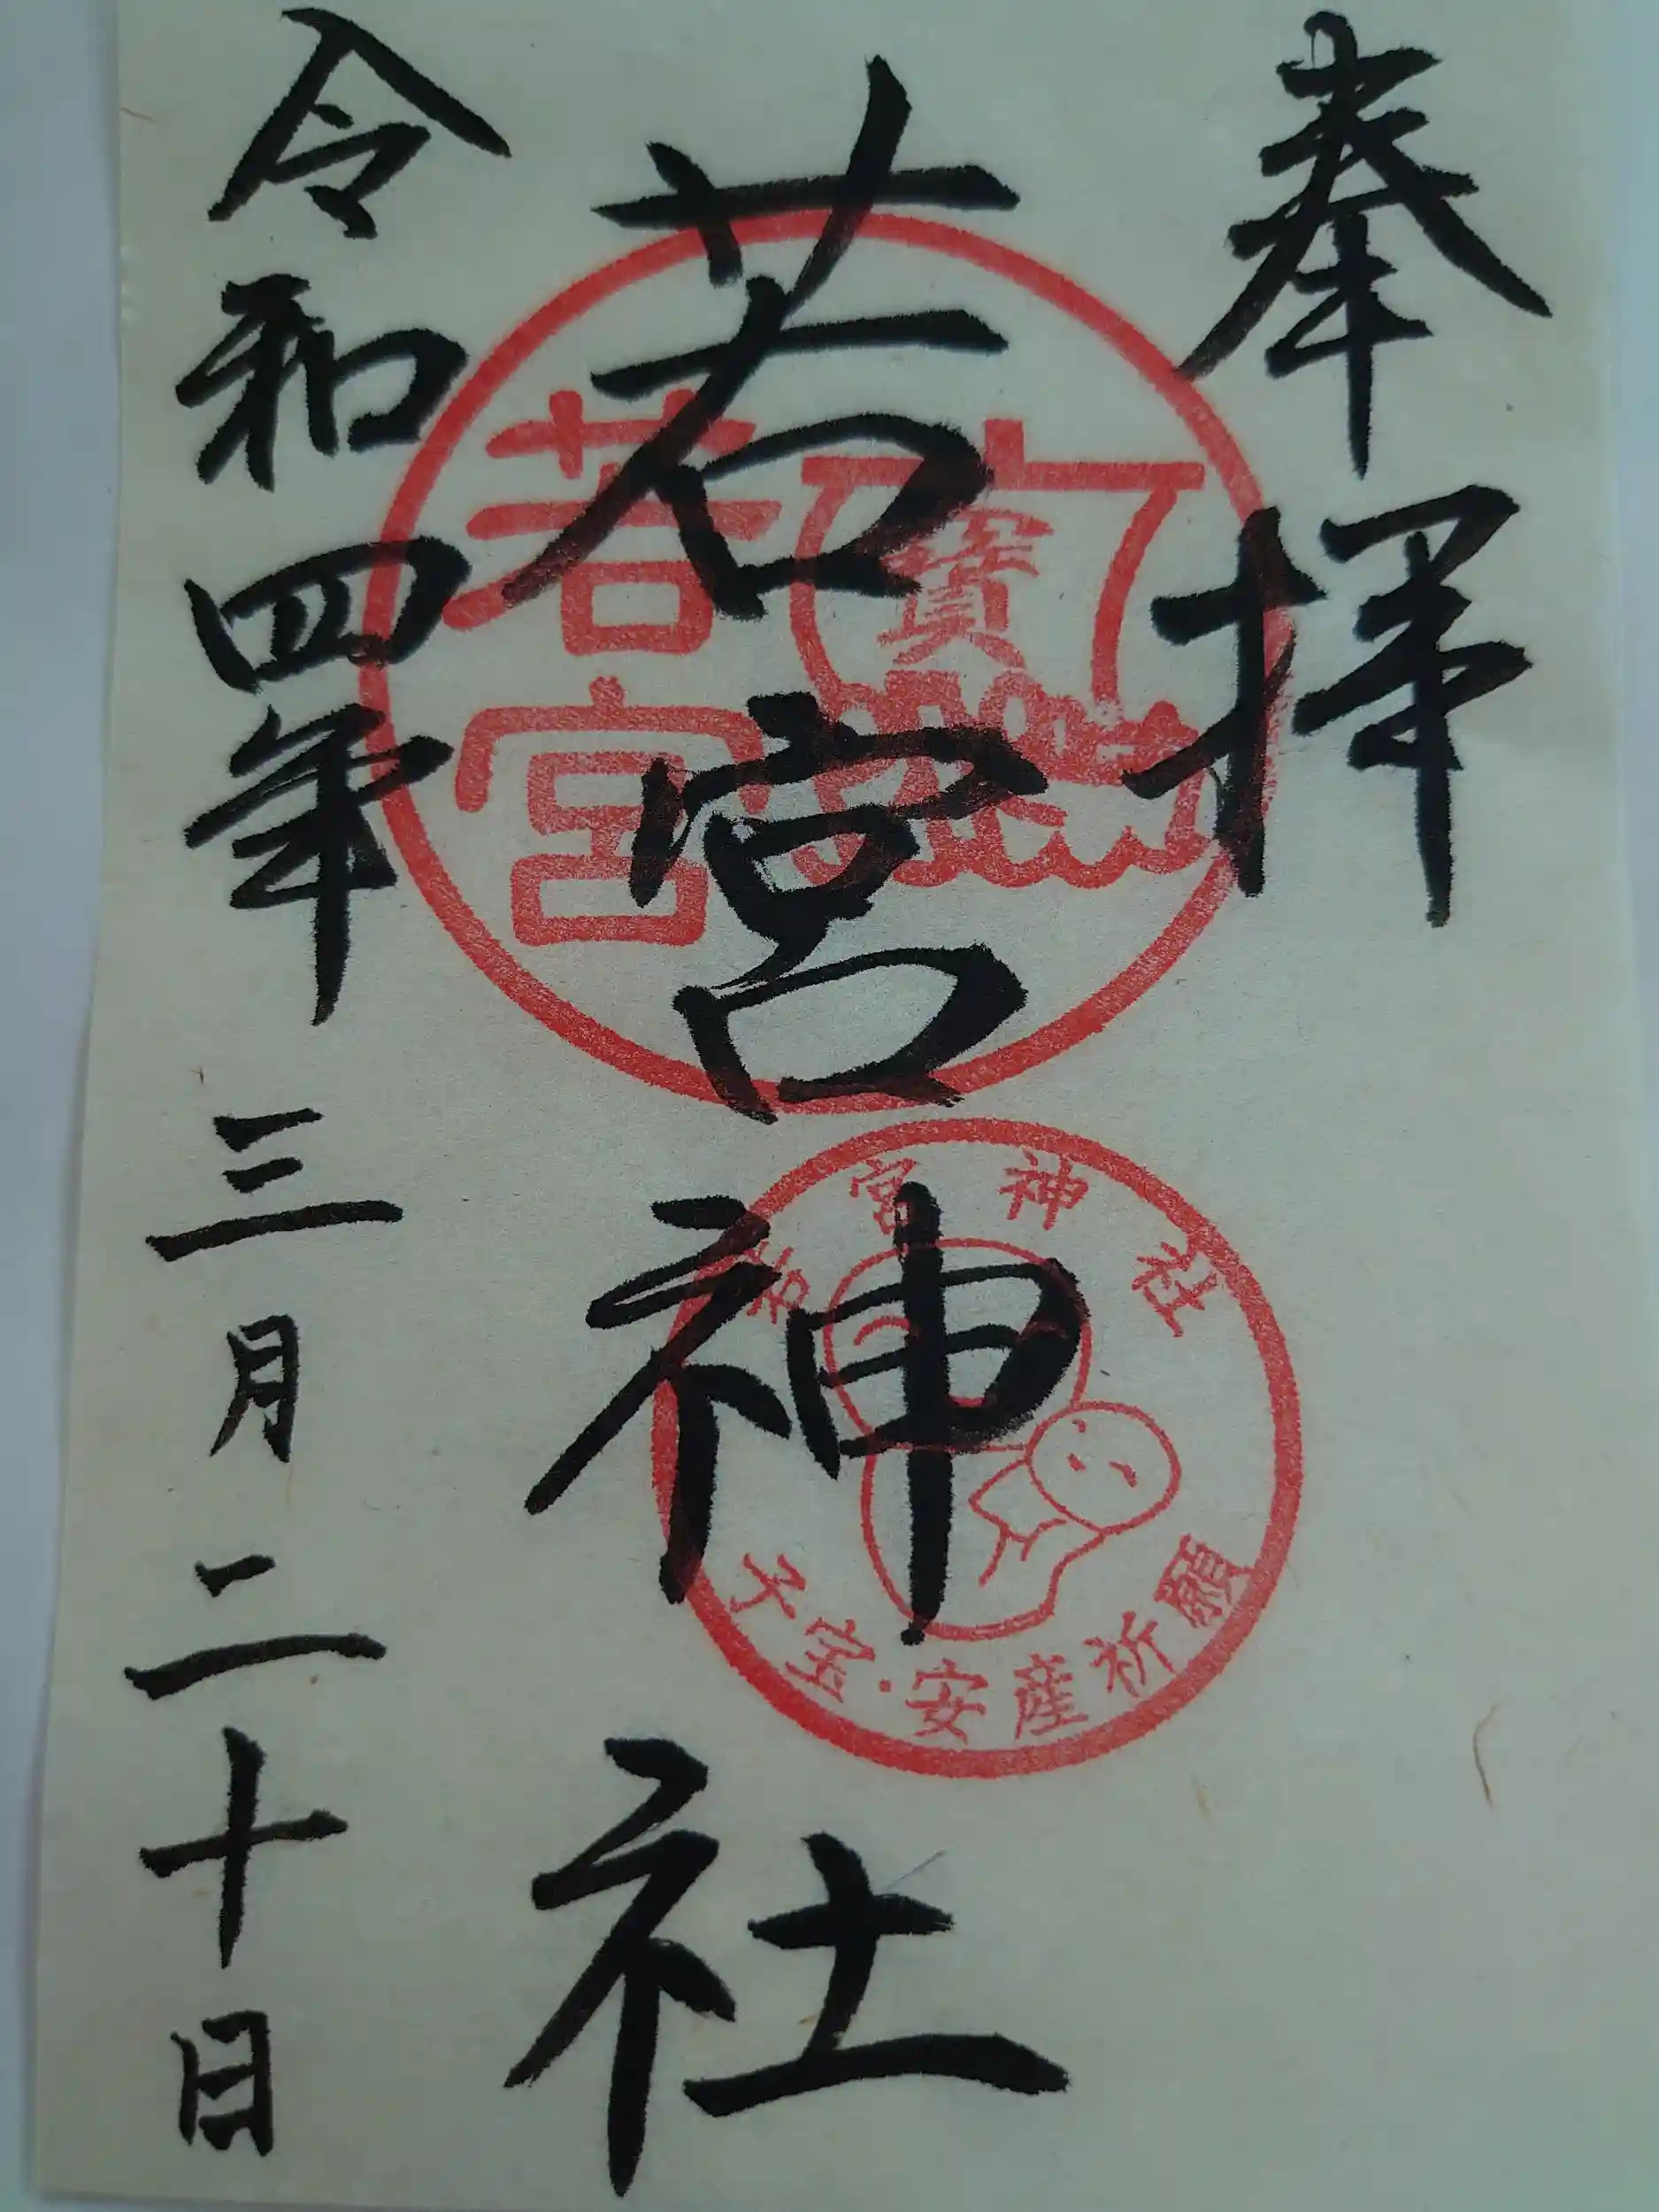 奉拝
若宮神社
令和四年三月二十日
若宮
寳
若宮神社
子宝・安産祈願